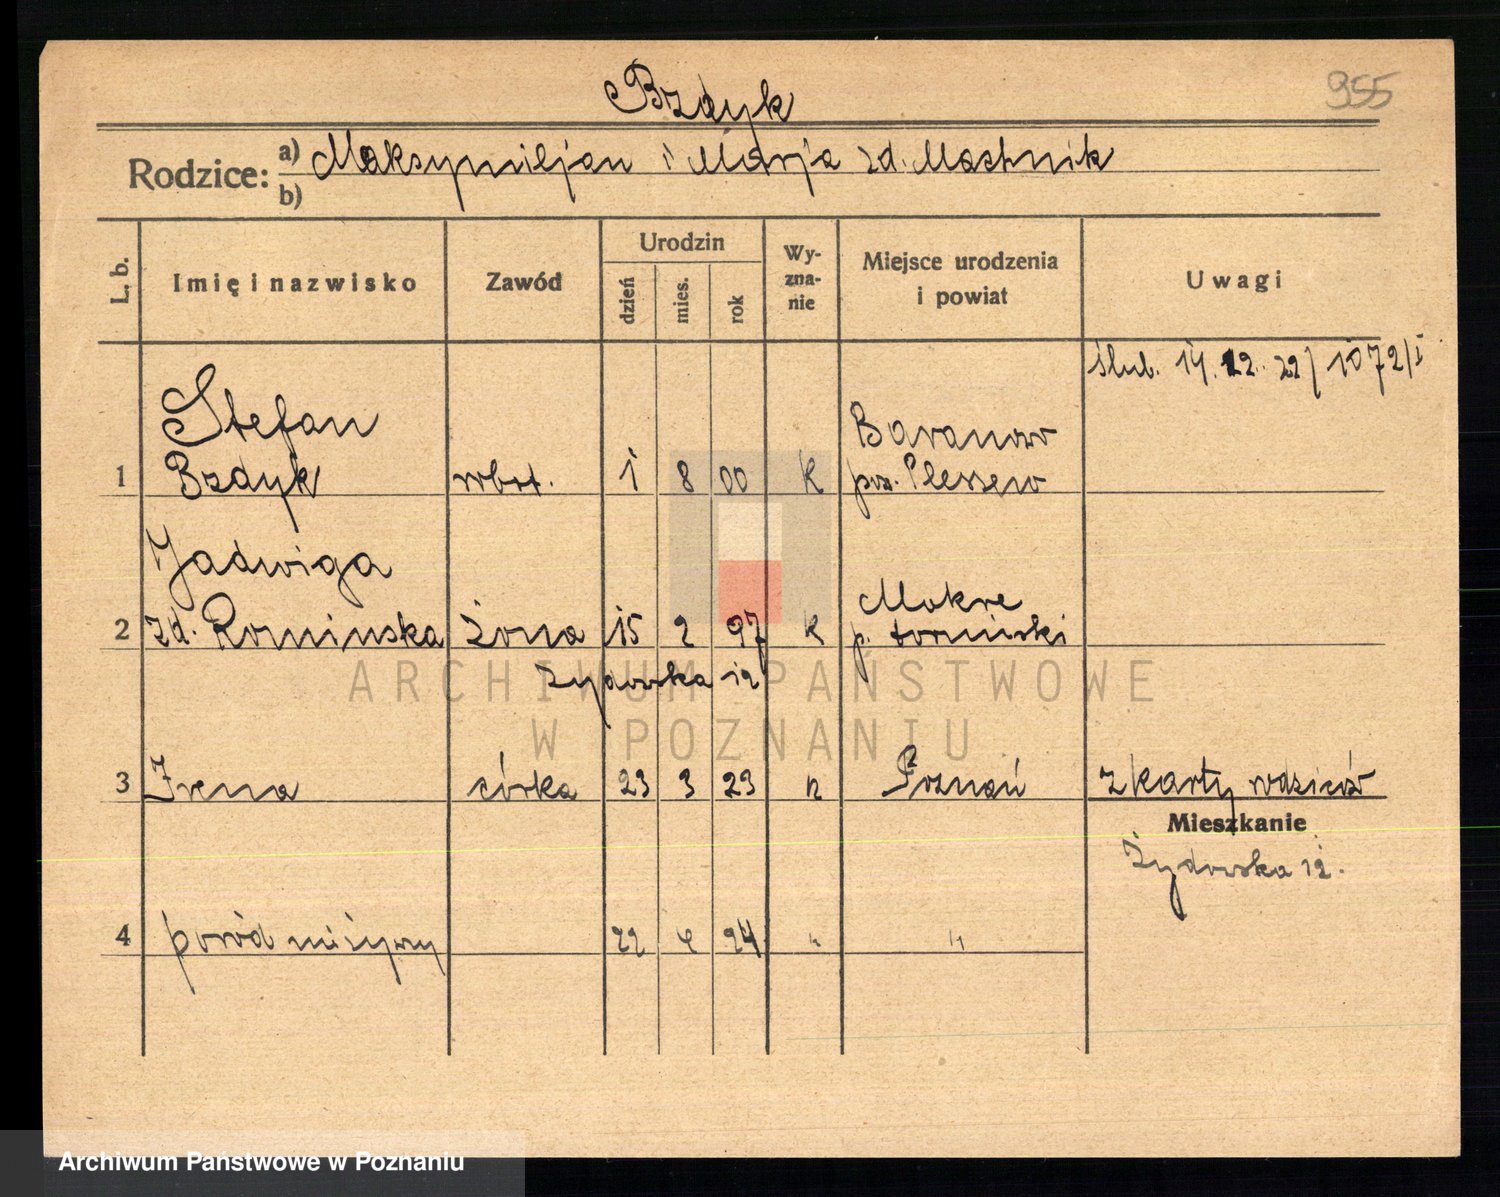 Bzdyk
955
Rodzice: a) Maksymiljan i Marja zd. Machnik
b)
L. b.
Imię i nazwisko
Zawód
Urodzin
dzień
mies.
rok
Wy-
zna-
nie
Miejsce urodzenia
i powiat
Uwagi
ślub. 14. 12. 22/1072/I
Stefan
1 Bzdyk robot. 1 8 00 K
Baranow
pow. Pleszew
Jadwiga
2 zd. Rominska żona 15 2 97 K
Mokre
p. toruński
Żydowska 12
3 Irena córka 23 3 23 k Poznań z karty rodziców
Mieszkanie
Żydowska 12.
4 poród nieżywy 22 4 24 " "
ARCHIWUM PAŃSTWOWE
W POZNANIU
Archiwum Państwowe w Poznaniu